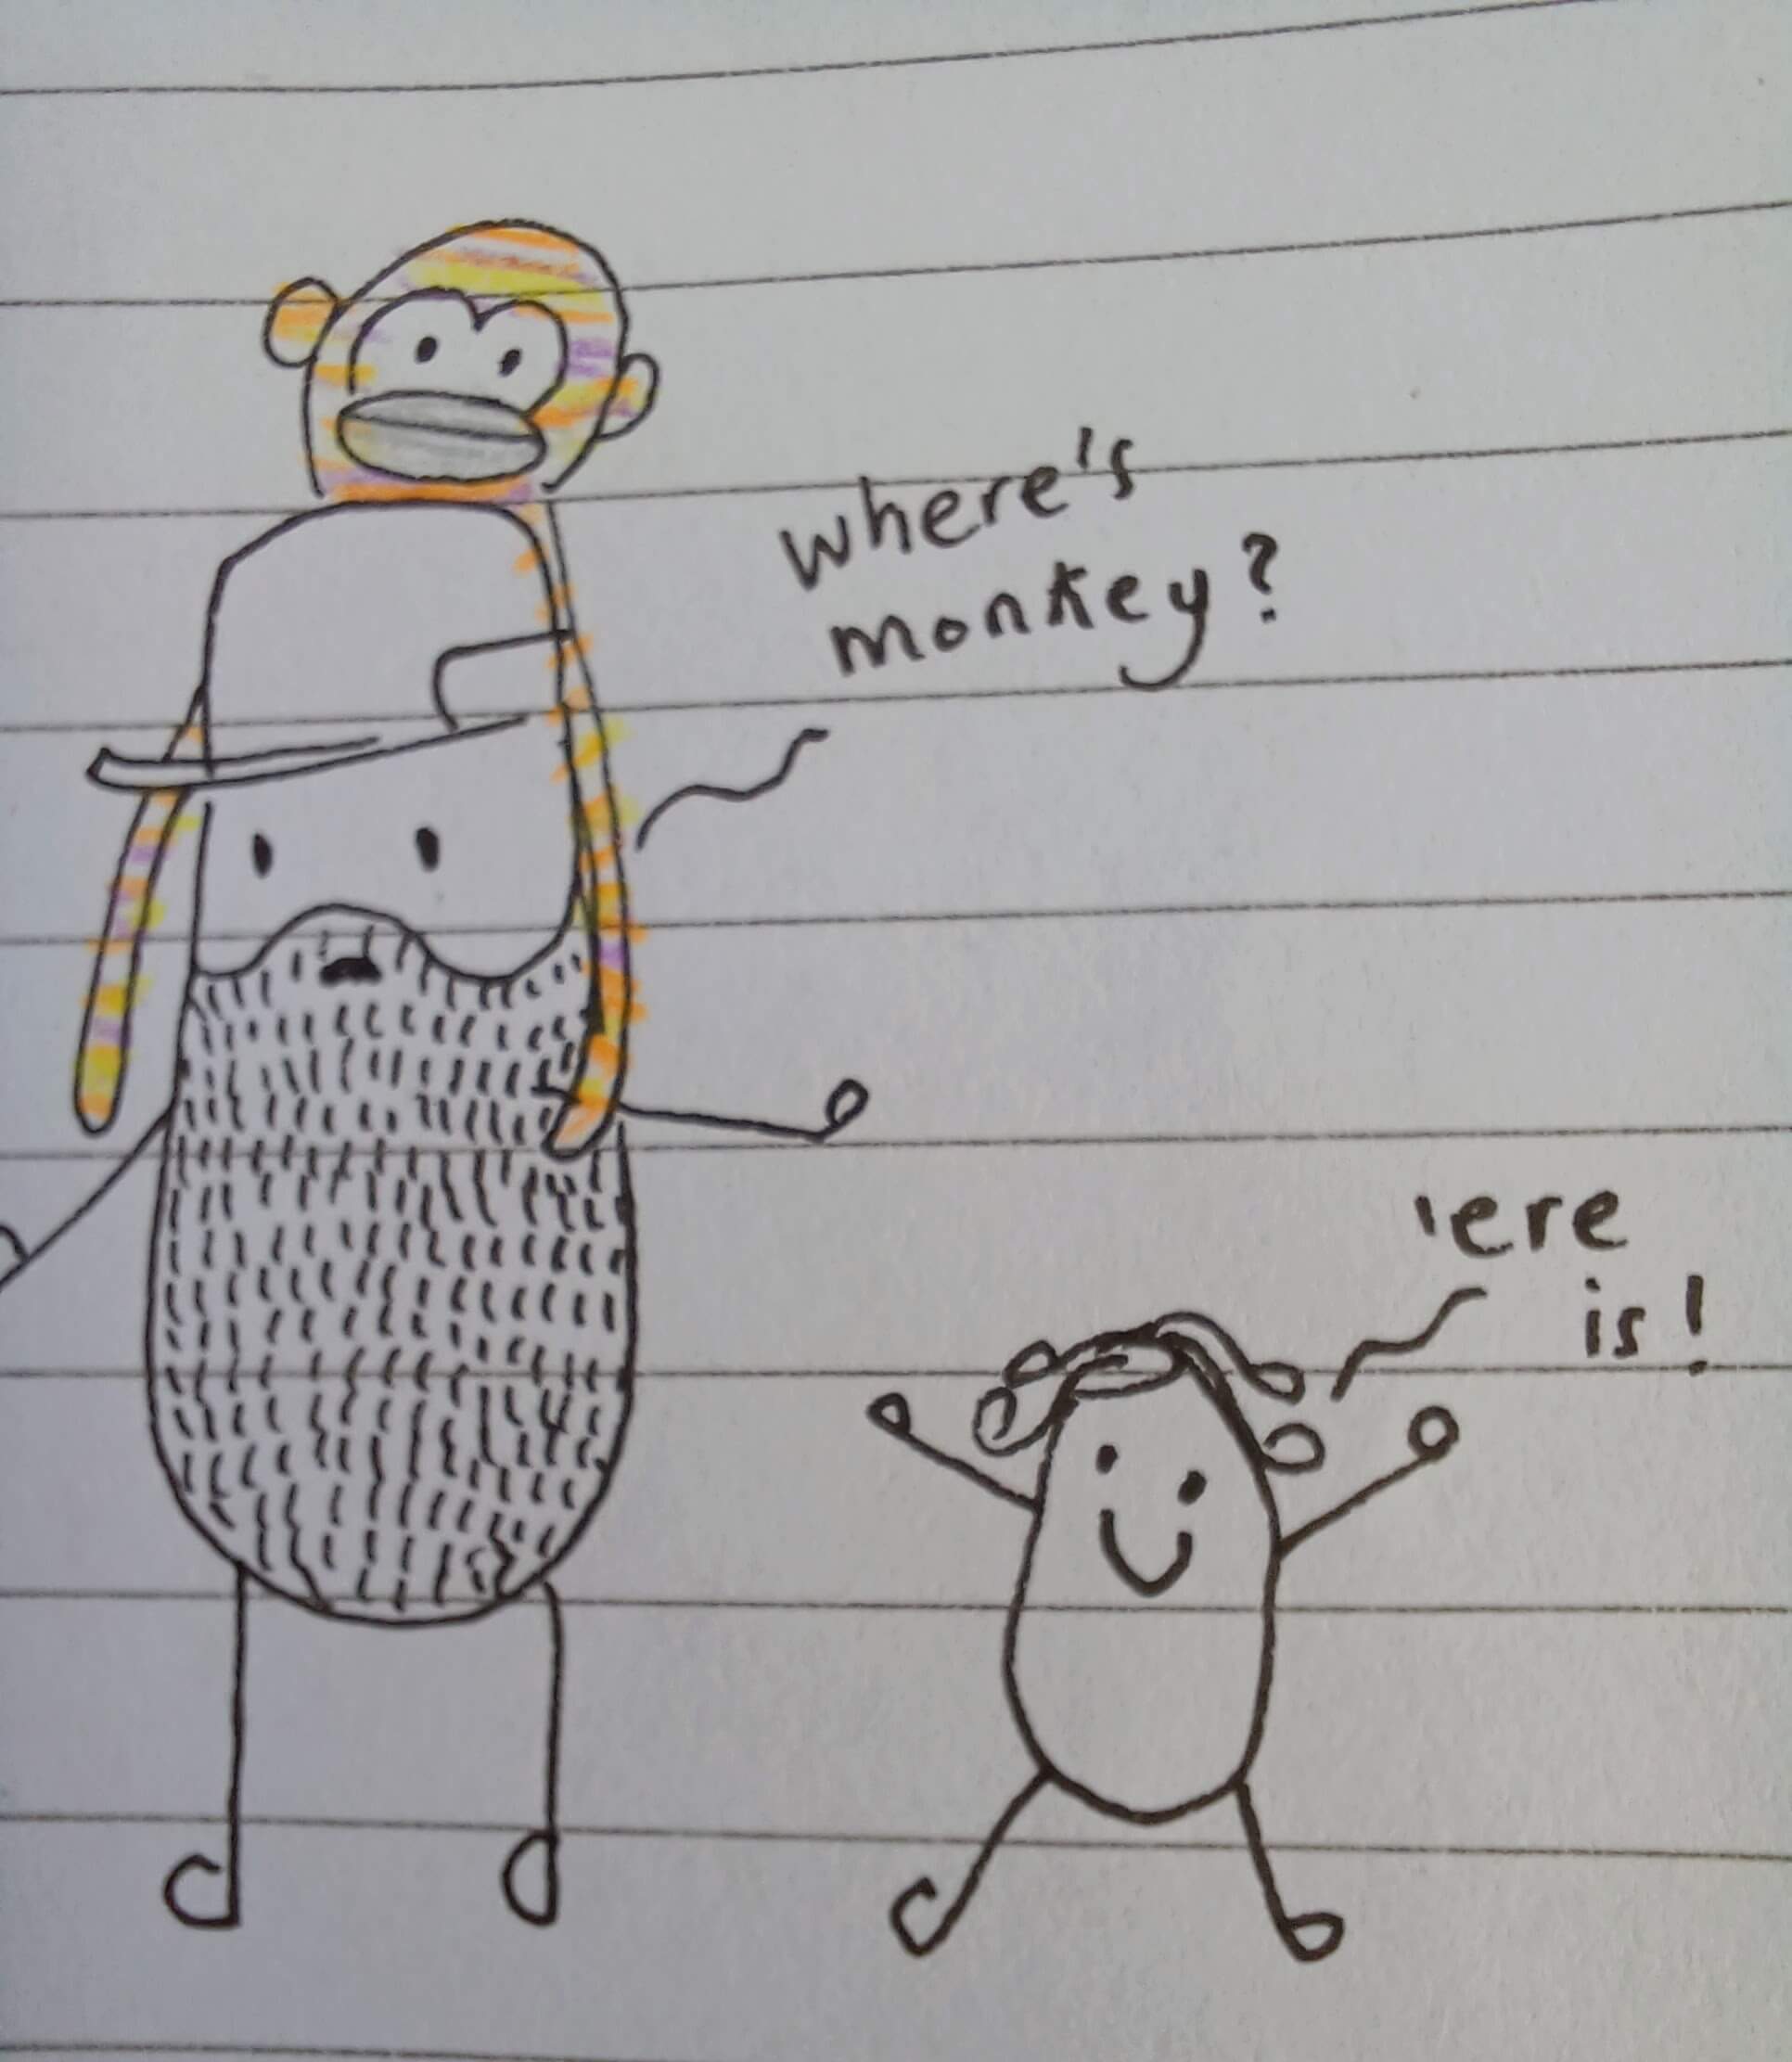 where's
monkey?
'ere
is!